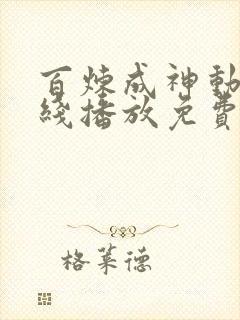 百煉成神動
綫播放免費
格萊德